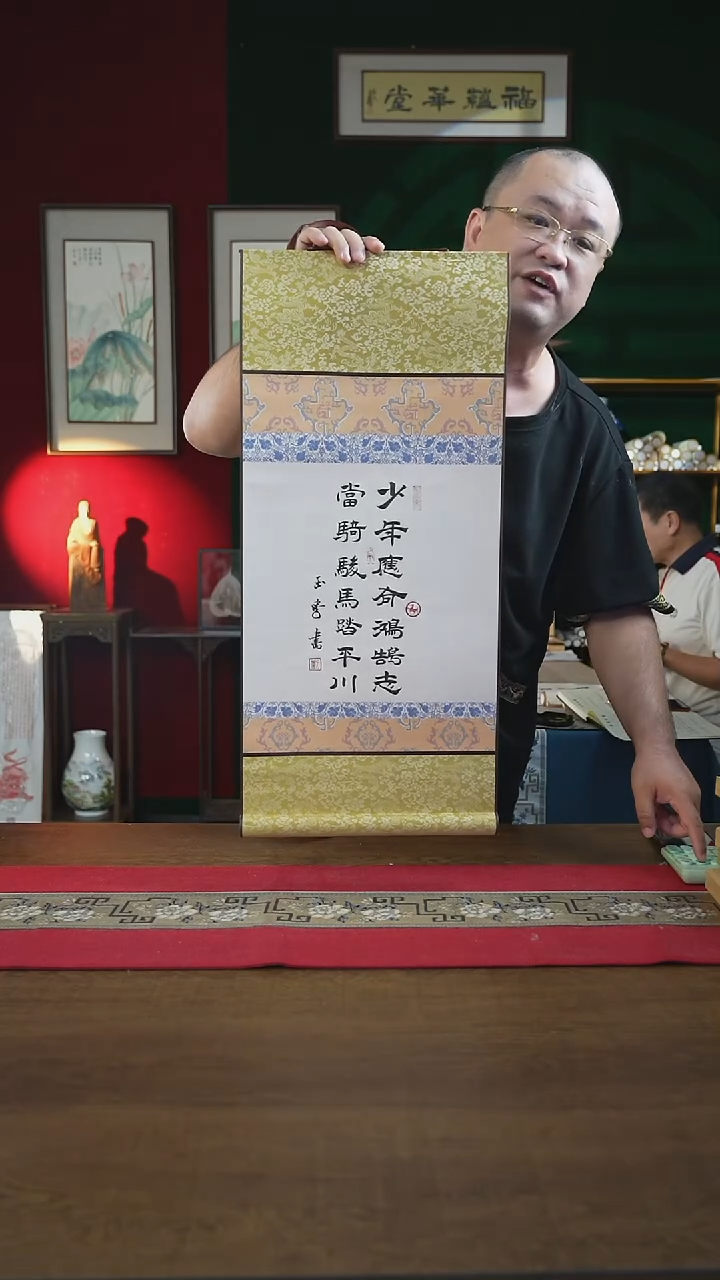 福蘊華堂
少年應有鴻鵠志
當騎駿馬踏平川
玉
書